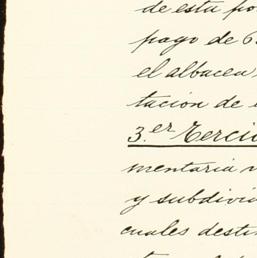 de esta po
pago de 6
el albacea
tacion de
3.er Tercio
mentaria
y subdivi
cuales desti